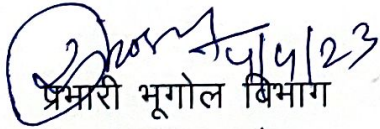 4/4/23
प्रभारी भूगोल विभाग